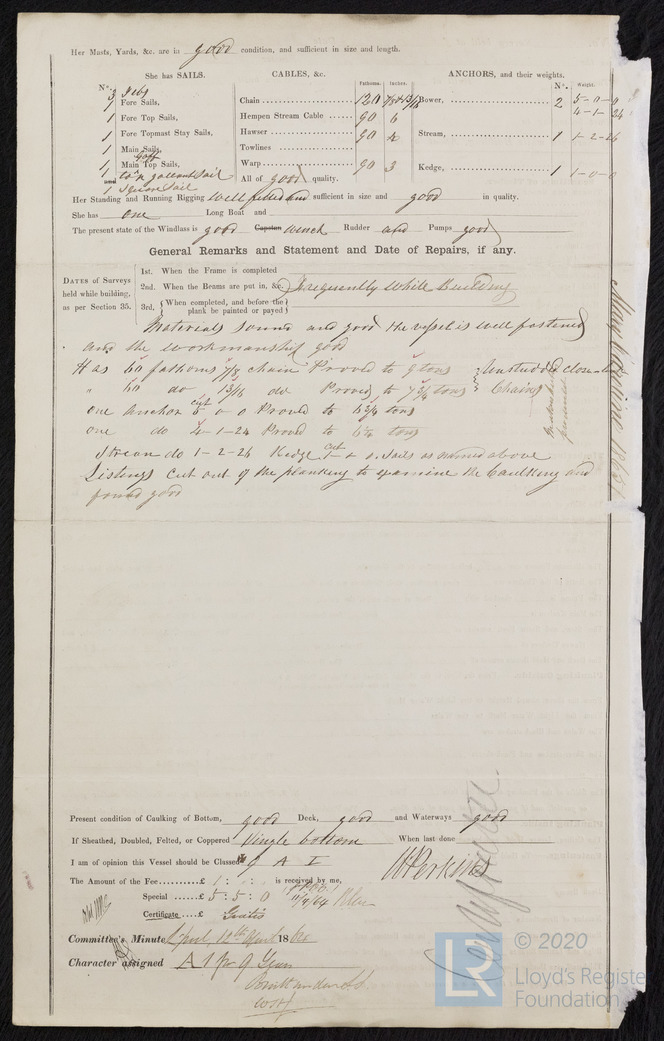 Her Masts, Yards, &c. are in good condition, and sufficient in size and length.
She has SAILS. CABLES, &c. Fathoms. Inches. ANCHORS, and their weights. Nº. Weight.
Nº.
3 Jibs
1 Fore Sails,
1 Fore Top Sails,
1 Fore Topmast Stay Sails,
1 Main Sails,
1 Main Gaff Top Sails,
1 gallant Sail
and 1 Square Sail
Chain 120 7/8 & 13/16
Hempen Stream Cable 90 6
Hawser 90 4
Towlines
Warp 90 3
All of good quality.
Bower, 2 5-0-0
4-1-24
Stream, 1 1-2-26
Kedge, 1 1-0-0
Her Standing and Running Rigging well fitted and sufficient in size and good in quality.
She has one Long Boat and
The present state of the Windlass is good Capstan winch Rudder and Pumps good
General Remarks and Statement and Date of Repairs, if any.
DATES of Surveys held while building, as per Section 35.
1st. When the Frame is completed
2nd. When the Beams are put in, &c. Frequently while Building
3rd, When completed, and before the plank be painted or payed
Materials sound and good the vessel is well fastened
and the workmanship good
Has 60 fathoms 7/8 chain Proved to 9 tons Unstudded close-link
" 60 do 13/16 do Proved to 7 3/4 tons Chains
one anchor cwt 5 0 0 Proved to tons
one do 4-1-24 Proved to 6 1/4 tons
Stream do 1-2-26 Kedge cwt 1 Sails as named above
Listings cut out of the planking to examine the Caulking and
found good
Present condition of Caulking of Bottom, good Deck, good and Waterways good
If Sheathed, Doubled, Felted, or Coppered Single bottom When last done
I am of opinion this Vessel should be Classed 9 A 1
W Perkins
The Amount of the Fee £ 1 : : is received by me,
Special £ 5 : 5 : 0 18
Certificate £ Gratis
Committee's Minute 12th April 18
Character assigned A 1 for 9 Years
Built under
© 2020
LR
Lloyd's Register
Foundation